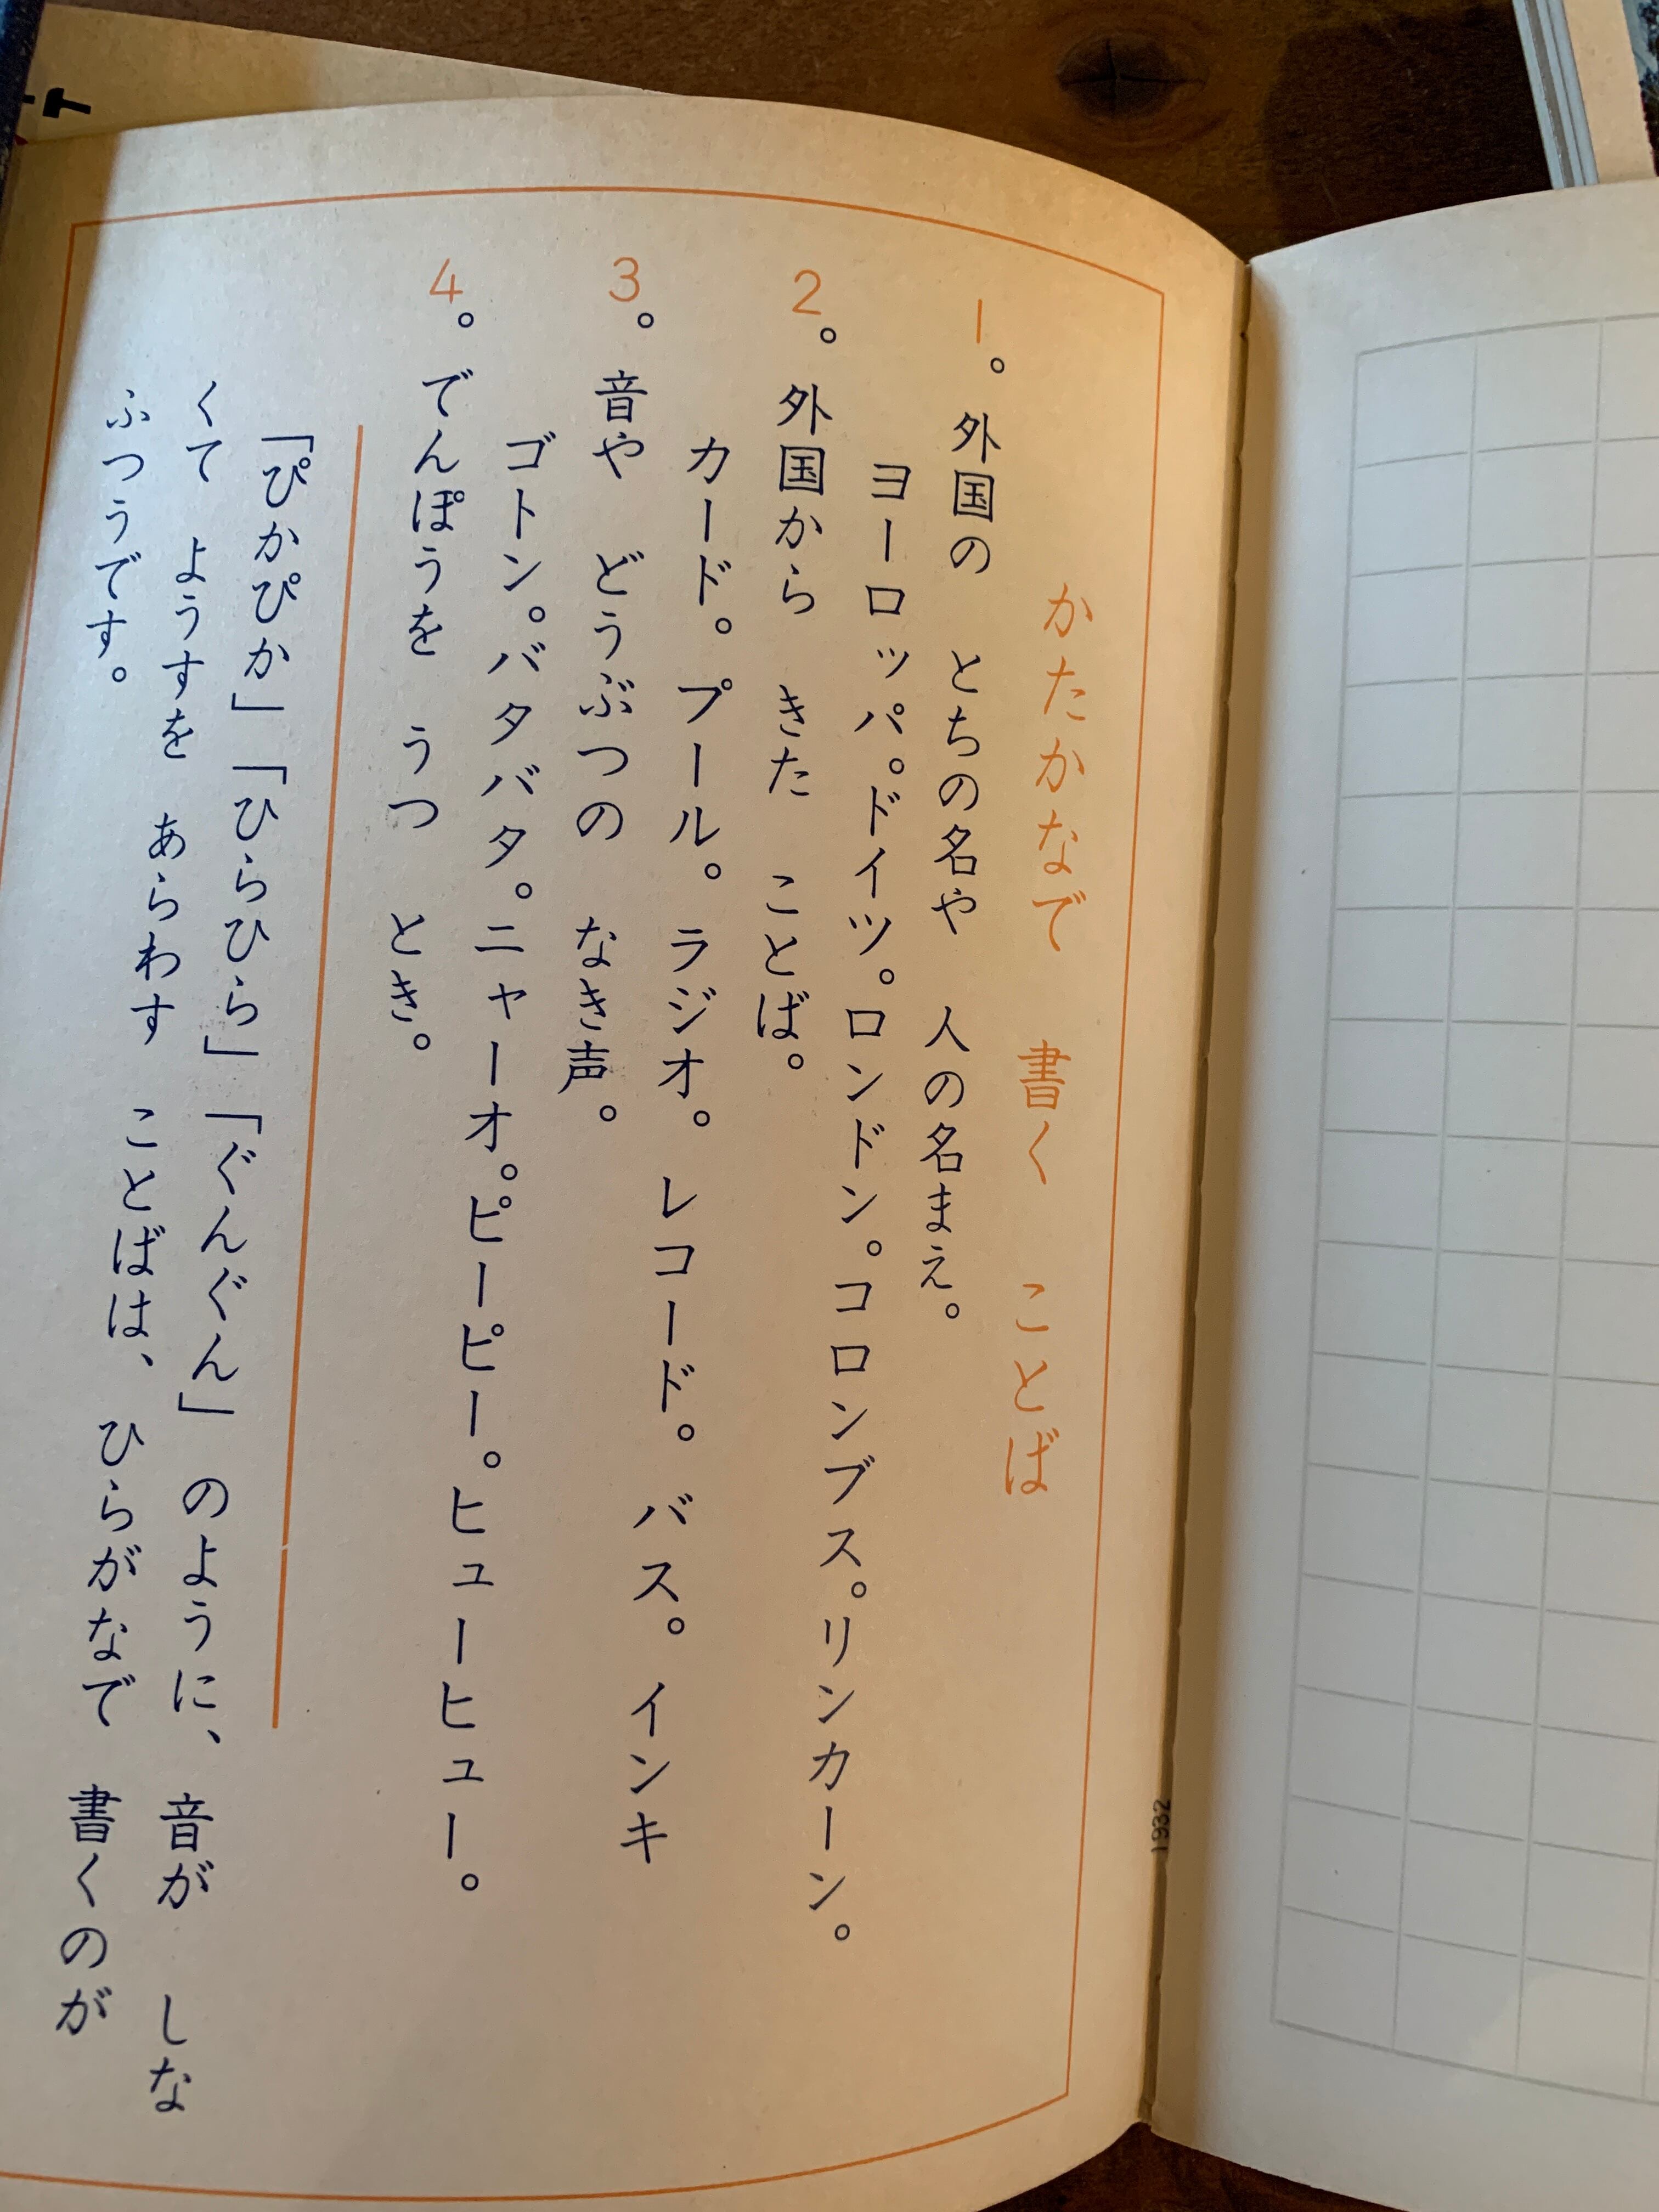 かたかなで　書く　ことば
1。外国の　とちの名や　人の名まえ。
ヨーロッパ。ドイツ。ロンドン。コロンブス。リンカーン。
2。外国から　きた　ことば。
カード。プール。ラジオ。レコード。バス。インキ
3。音や　どうぶつの　なき声。
ゴトン。バタバタ。ニャーオ。ピーピー。ヒューヒュー。
4。でんぽうを　うつ　とき。
「ぴかぴか」「ひらひら」「ぐんぐん」のように、音が　しな
くて　ようすを　あらわす　ことばは、ひらがなで　書くのが
ふつうです。
1932